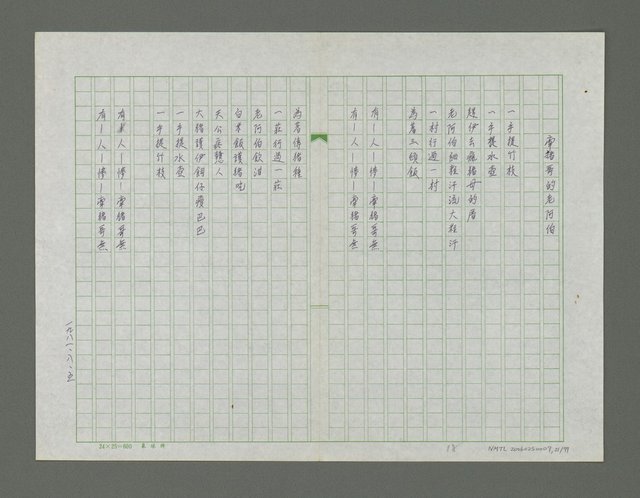 牽豬哥的老阿伯
一手提竹枝
一手提水壺
趕伊去瘋豬母的厝
老阿伯細粒汗流大粒汗
一村行過一村
為著三頓飯
有—人—倩—牽豬哥無
有—人—倩—牽豬哥無
為著傳豬種
一莊行過一莊
老阿伯飲泔
白米飯護豬吃
天公疼戇人
大豬護伊飼仔瘦巴巴
一手提水壺
一手提竹枝
有—人—倩—牽豬哥無
有—人—倩—牽豬哥無
一九八一.八.五
24×25=600
18
NMTL